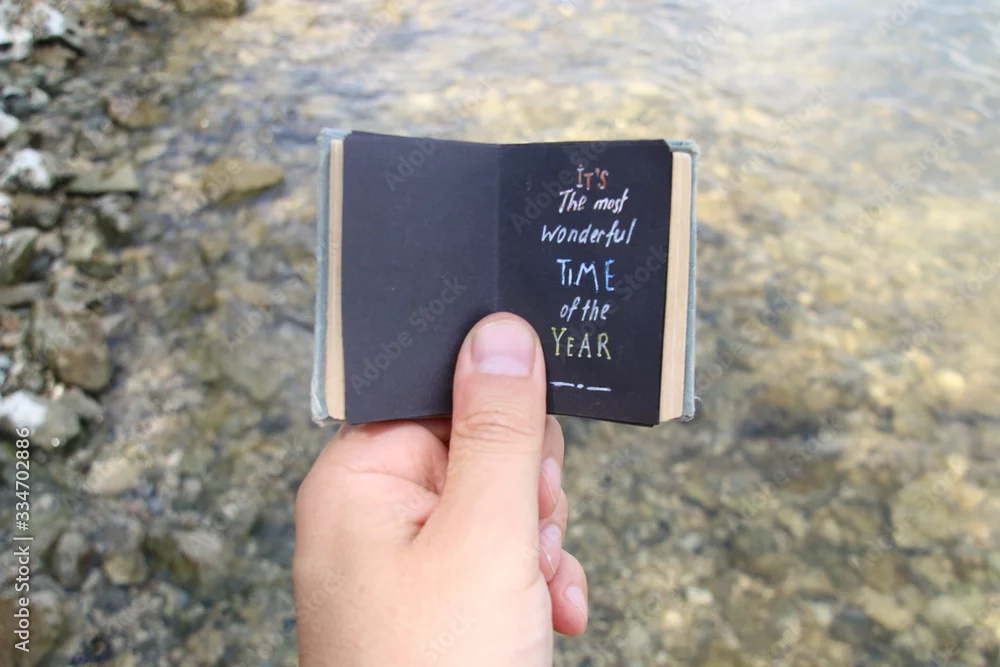 IT'S
The most
wonderful
TIME
of the
YEAR
Adobe Stock | #334702886